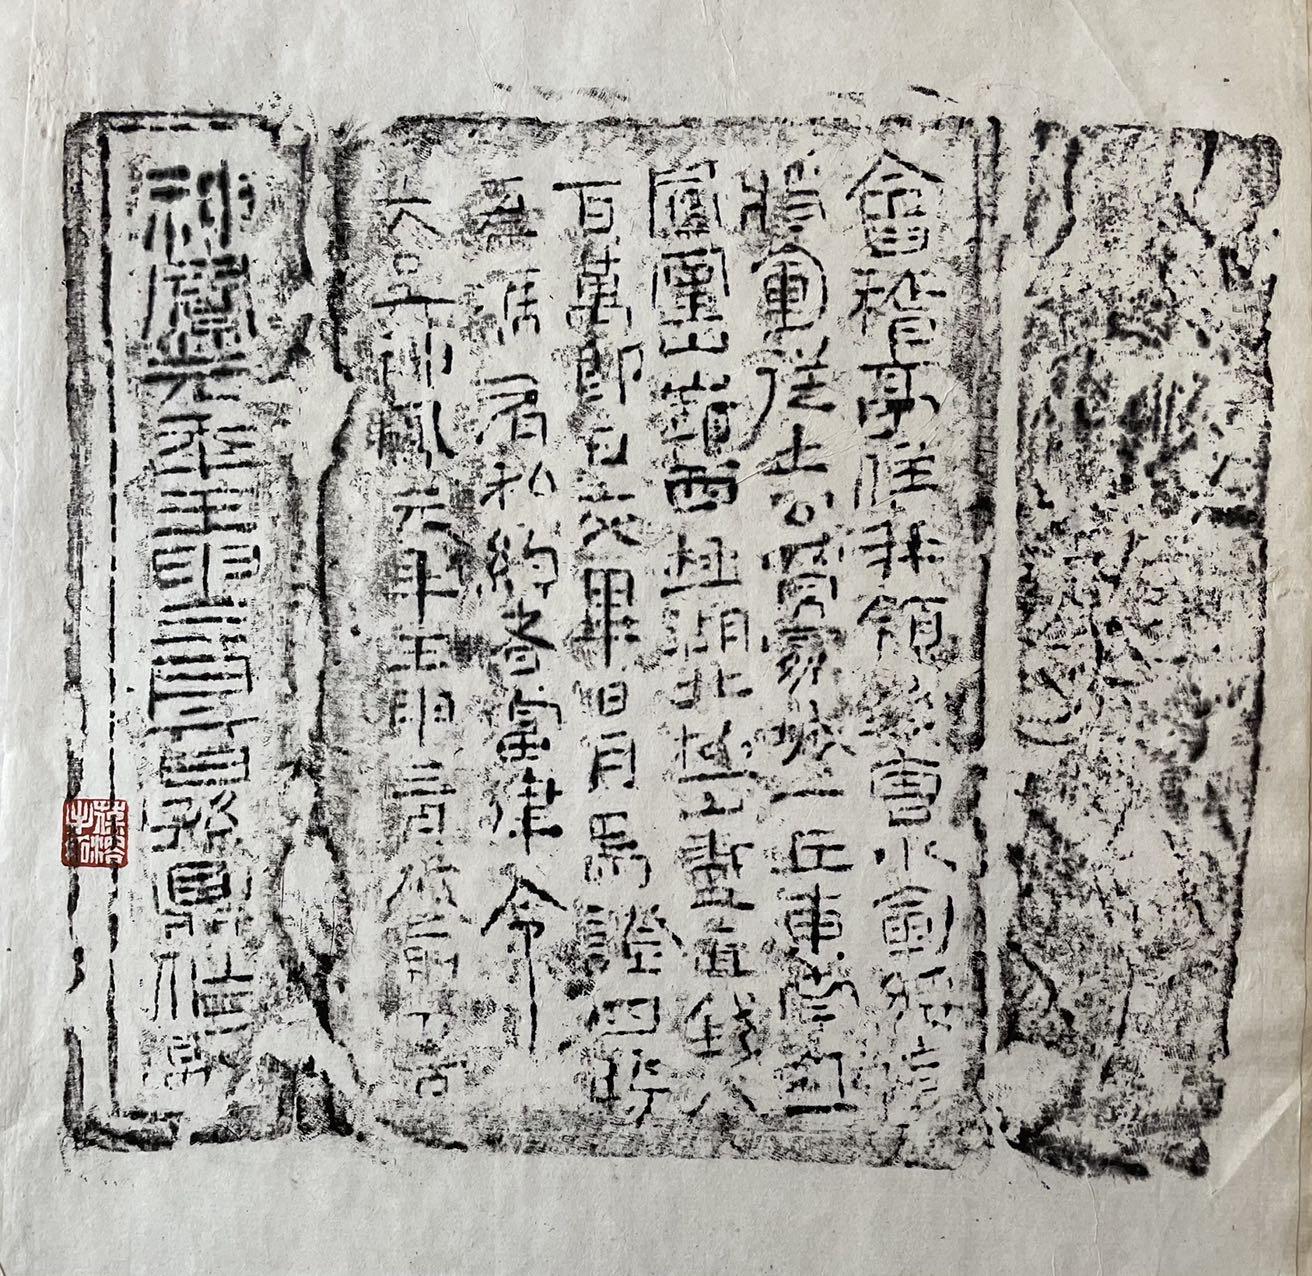 會稽亭侯并領錢唐水軍綏遠
將軍從土公買冢城一丘東南極
鳳凰山嶺西極湖北極山盡直錢八
百萬即日交畢日月為證四時
為任有私約者當律令
大吳神鳳元年壬申三月破莂大吉
神鳳元年壬申三月六日孫鼎作莂